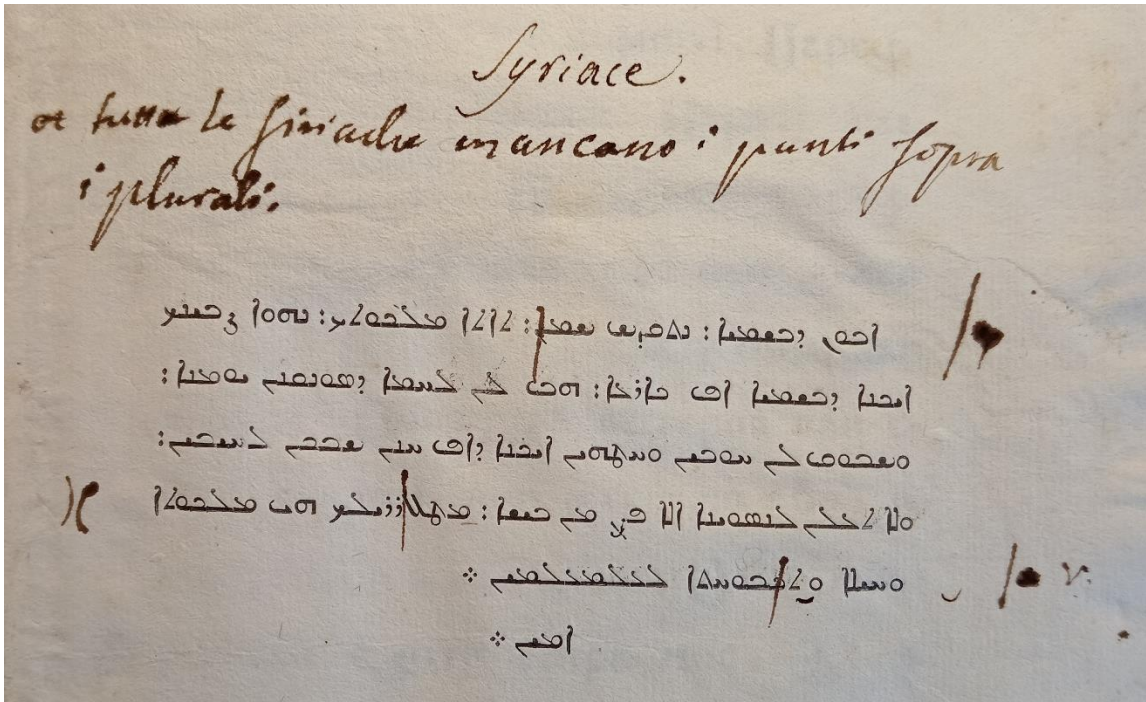 Syriace.
tutte le siriache mancano i punti sopra
i plurali.
ܐܒܘܢ ܕܒܫܡܝܐ: ܢܬܩܕܫ ܬܐܬܐ ܡܠܟܘܬܟ: ܢܗܘܐ ܨܒܝܢܟ
ܐܝܟܢܐ ܕܒܫܡܝܐ ܐܦ ܒܐܪܥܐ: ܗܒ ܠܢ ܠܚܡܐ ܕܣܘܢܩܢܢ ܝܘܡܢܐ:
ܘܫܒܘܩ ܠܢ ܚܘܒܝܢ ܘܚܛܗܝܢ ܐܝܟܢܐ ܕܐܦ ܚܢܢ ܫܒܩܢ ܠܚܝܒܝܢ:
ܘܠܐ ܬܥܠܢ ܠܢܣܝܘܢܐ ܐܠܐ ܦܨܢ ܡܢ ܒܝܫܐ: ܡܛܠ ܕܕܝܠܟ ܗܝ ܡܠܟܘܬܐ
ܘܚܝܠܐ ܘܬܫܒܘܚܬܐ ܠܥܠܡܥܠܡܝܢ ܀
ܐܡܝܢ ܀